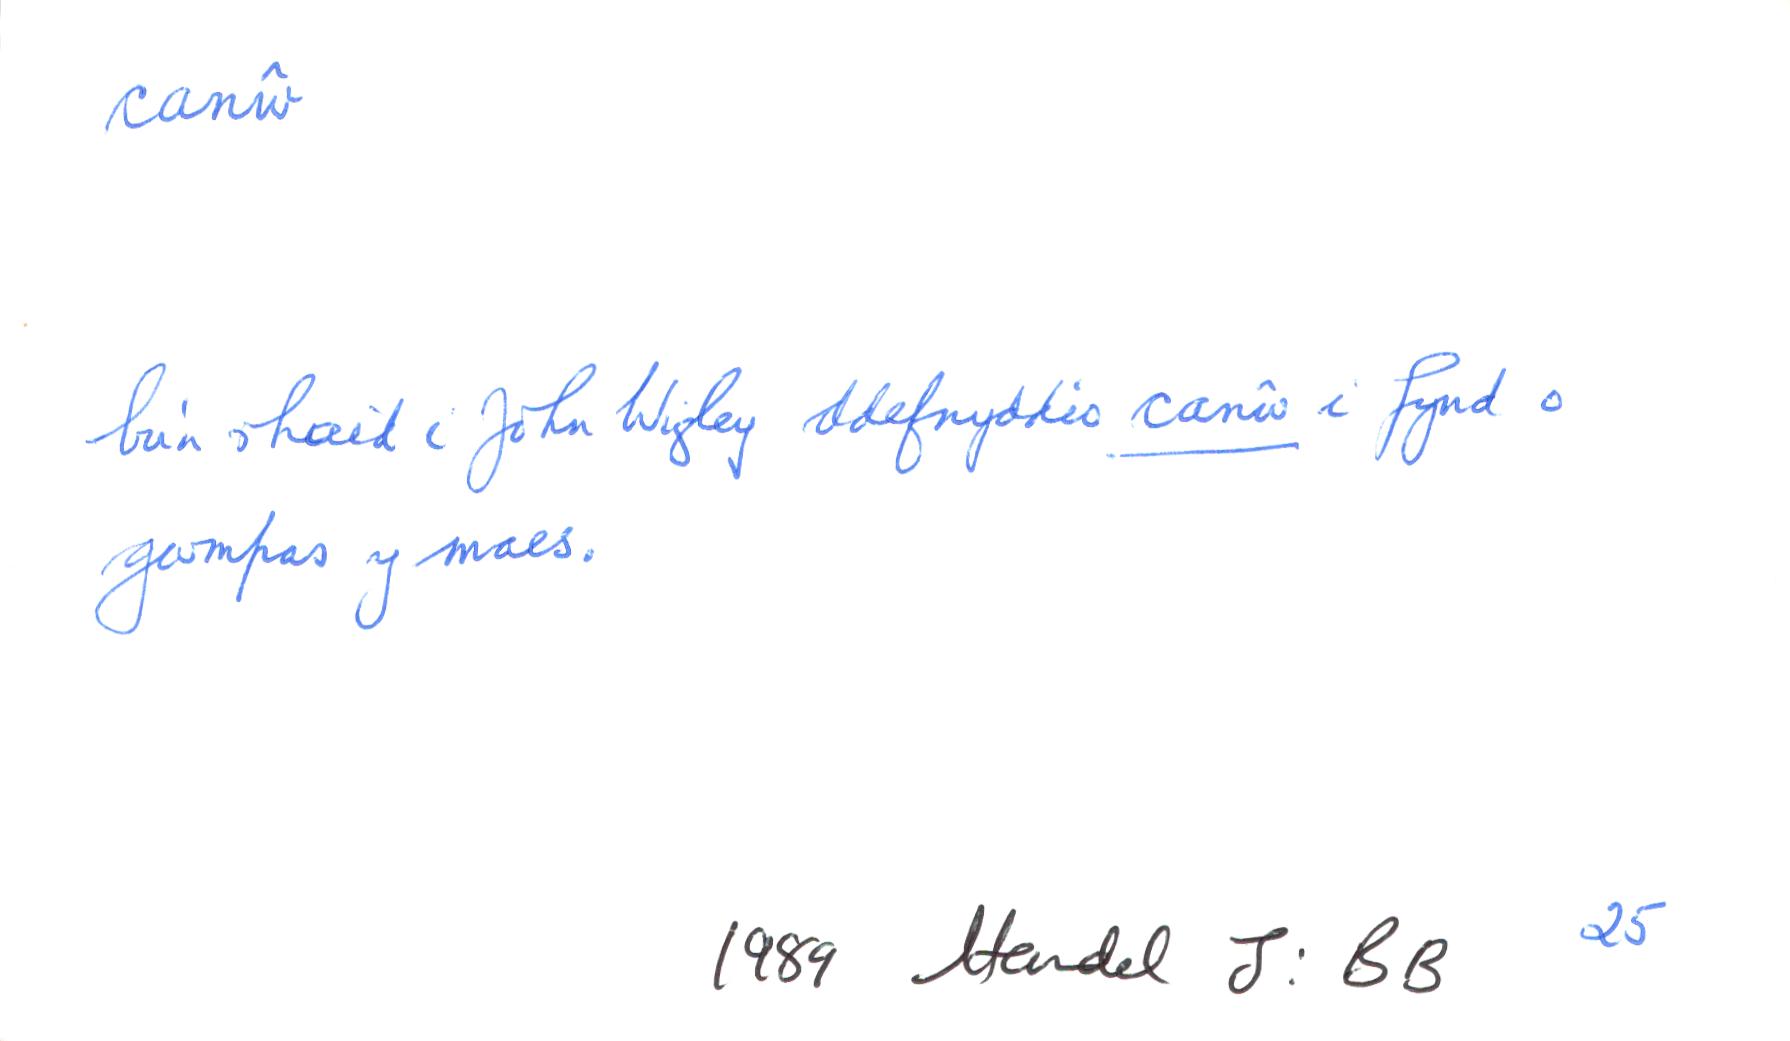 canŵ
bu'n rhaid i John Wigley ddefnyddio canŵ i fynd o
gwmpas y maes.
1989 Hendel J: BB 25